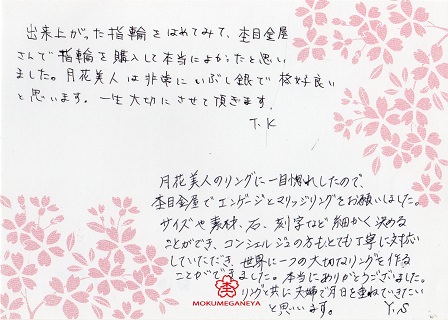 出来上がった指輪をはめてみて、杢目金屋
さんで指輪を購入して本当によかったと思い
ました。月花美人は非常にいぶし銀で格好良い
と思います。一生大切にさせて頂きます。
T.K
月花美人のリングに一目惚れしたので、
杢目金屋でエンゲージとマリッジリングをお願いしました。
サイズや素材、石、刻字など細かく決める
ことができ、コンシェルジュの方もとても丁寧に対応
していただき、世界に一つの大切なリングを作る
ことができました。本当にありがとうございました。
リングと共に夫婦で月日を重ねていきたい
と思います。 Y.S
MOKUMEGANEYA